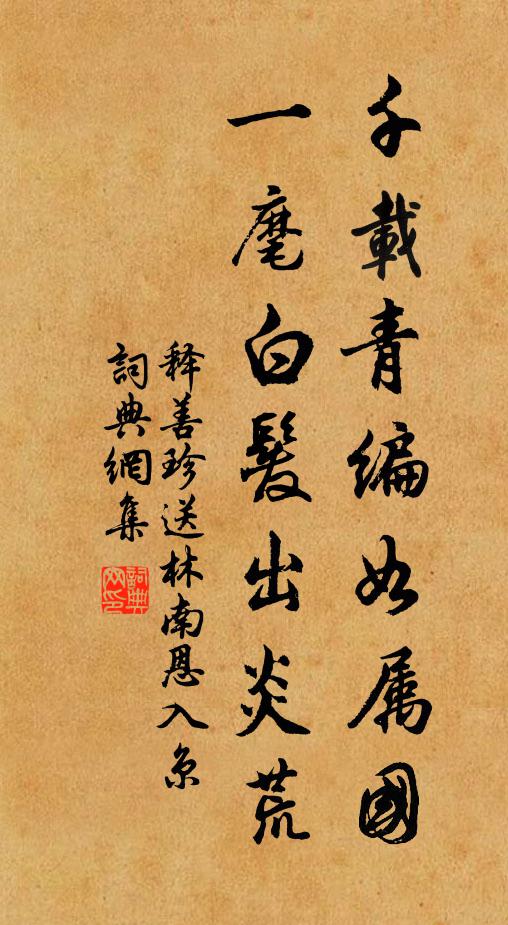 千載青编如属國
一麾白髮出炎荒
释善珍送林南恩入京
詞典網集
詞典网印